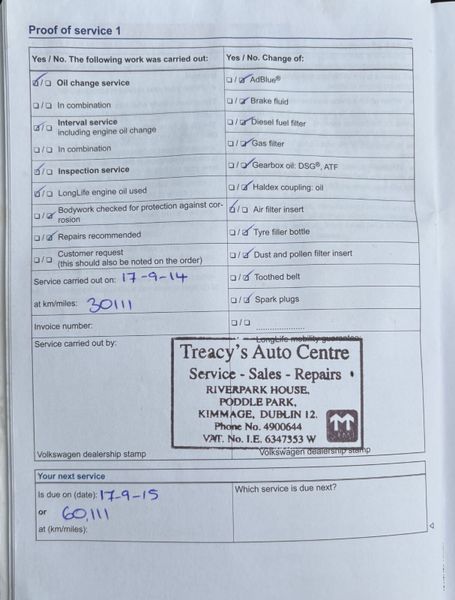 Proof of service 1
Yes / No. The following work was carried out:
Yes / No. Change of:
☑/☐ Oil change service
☐/☑ AdBlue®
☐/☐ In combination
☐/☑ Brake fluid
☑/☐ Interval service
including engine oil change
☐/☑ Diesel fuel filter
☐/☐ In combination
☐/☑ Gas filter
☑/☐ Inspection service
☐/☑ Gearbox oil: DSG®, ATF
☑/☐ LongLife engine oil used
☐/☑ Haldex coupling: oil
☐/☑ Bodywork checked for protection against cor-
rosion
☑/☐ Air filter insert
☐/☑ Repairs recommended
☐/☑ Tyre filler bottle
☐/☐ Customer request
(this should also be noted on the order)
☐/☑ Dust and pollen filter insert
Service carried out on: 17-9-14
☐/☑ Toothed belt
at km/miles: 30111
☐/☑ Spark plugs
Invoice number:
☐/☐ ....................
Service carried out by:
LongLife mobility guarantee
Treacy's Auto Centre
Service - Sales - Repairs
RIVERPARK HOUSE,
PODDLE PARK,
KIMMAGE, DUBLIN 12.
Phone No. 4900644
VAT. No. I.E. 6347353 W
Volkswagen dealership stamp
Volkswagen dealership stamp
Your next service
Is due on (date): 17-9-15
Which service is due next?
or 60,111
at (km/miles):